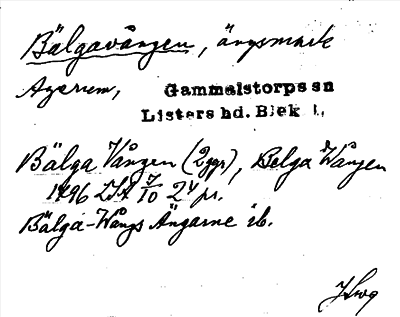 Bälgavången, ängsmark
Agerum,
Gammalstorps sn
Listers hd. Blek. l.
Bälga Vången (2 ggr), Belga Wången
1796 LSA 7/10 24 pr.
Bälga-Wångs Ängarne ib.